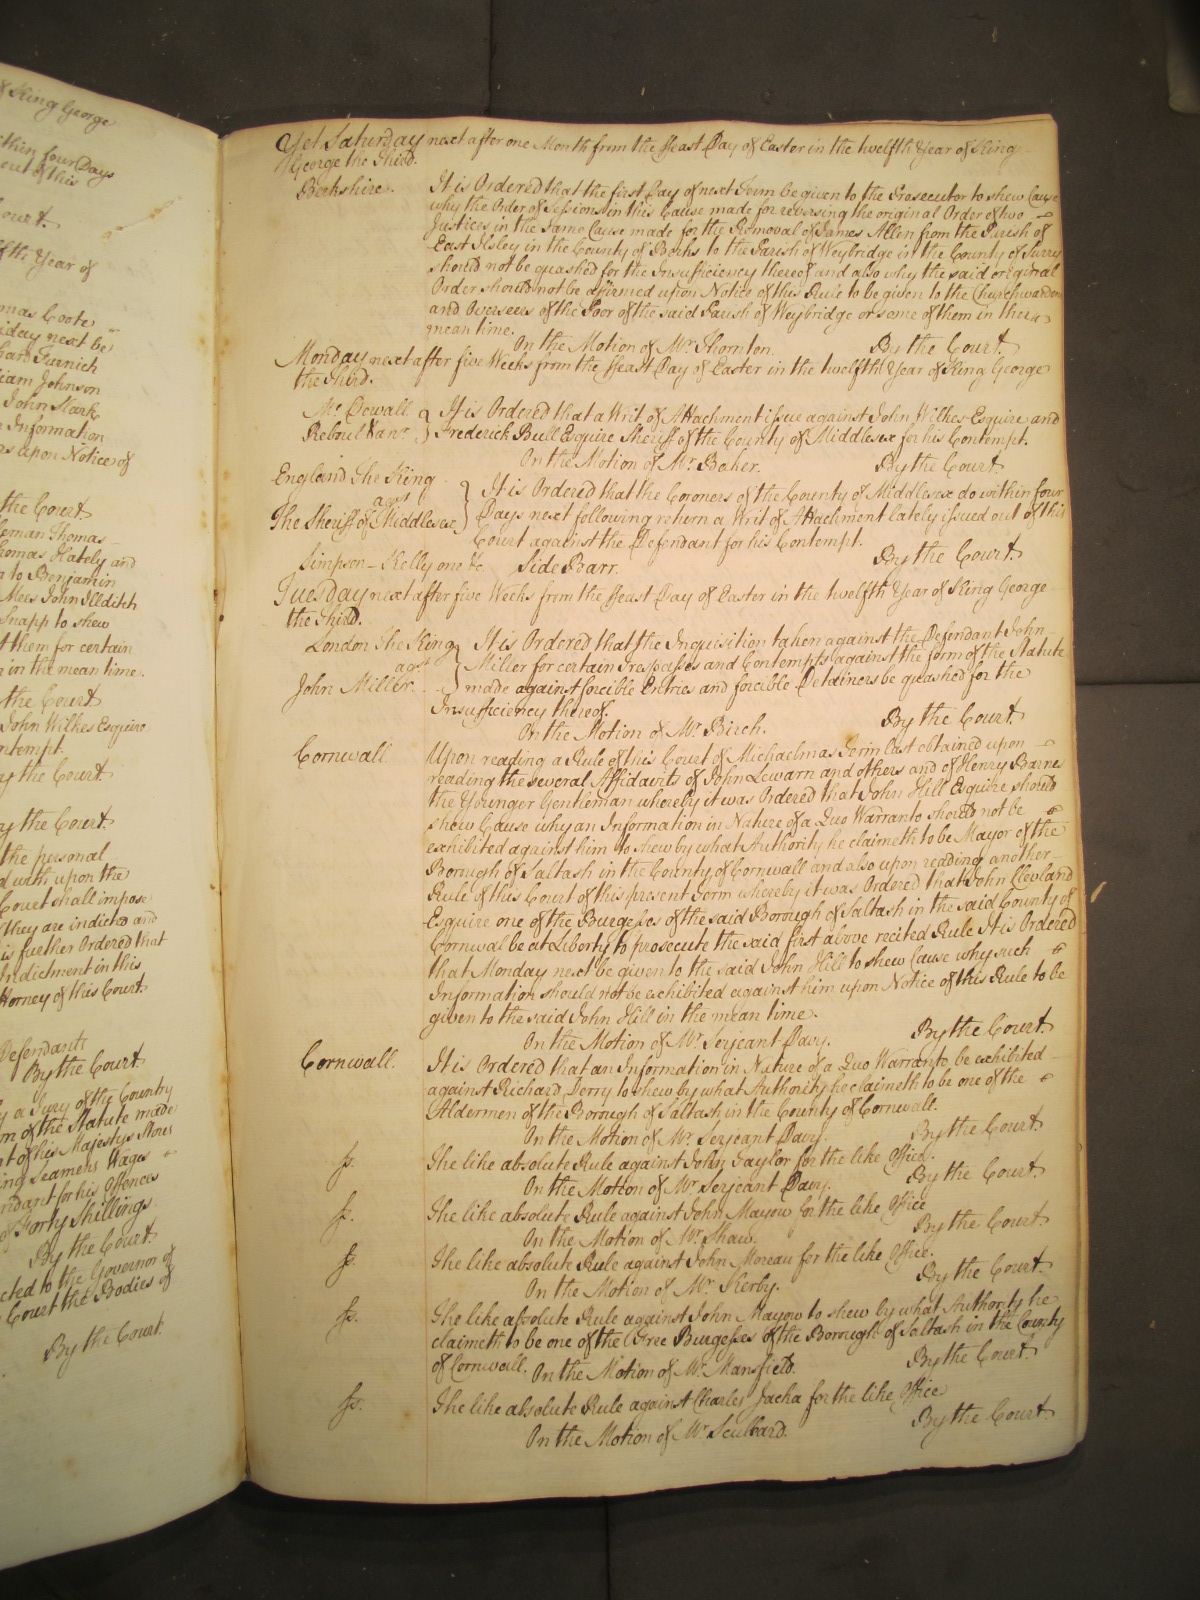 of King George
within four Days
out of this
Court.
of the Year of
Thomas Coote
Friday next be
William Johnson
John Stark
Information
upon Notice of
the Court
Thomas
Thomas Hately and
to Benjamin
Mees John Illditch
Snapp to shew
them for certain
in the mean time.
the Court
John Wilkes Esquire
Contempt.
by the Court
by the Court.
the personal
with upon the
Court shall impose
they are indicted and
is further Ordered that
Indictment in this
Attorney of this Court.
Defendants
By the Court.
by a Jury of the Country
form of the Statute made
of his Majestys Stores
Seamens Wages
Defendant for his Offences
of Forty Shillings.
By the Court
directed to the Governor of
Court the Bodies of
By the Court.
Yet Saturday next after one Month from the ffeast Day of Easter in the twelfth Year of King
George the Third.
Berkshire. It is Ordered that the first Day of next Term be given to the Prosecutor to shew Cause
why the Order of Sessions in this Cause made for reversing the original Order of two
Justices in the same Cause made for the Removal of James Allen from the Parish of
East Ilsley in the County of Berks to the Parish of Weybridge in the County of Surry
should not be quashed for the Insufficiency thereof and also why the said original
Order should not be affirmed upon Notice of this Rule to be given to the Churchwardens
and Overseers of the Poor of the said Parish of Weybridge or some of them in the
mean time.
On the Motion of Mr. Thornton. By the Court.
Monday next after five Weeks from the ffeast Day of Easter in the twelfth Year of King George
the Third.
Mc. Dowall } It is Ordered that a Writ of Attachment issue against John Wilkes Esquire and
Reboul & anr. } Frederick Bull Esquire Sheriff of the County of Middlesex for his Contempt.
On the Motion of Mr. Baker. By the Court
England The King } It is Ordered that the Coroners of the County of Middlesex do within four
agst
The Sheriff of Middlesex } Days next following return a Writ of Attachment lately issued out of this
Court against the Defendant for his Contempt.
Simpson - Kelly one &c Side Barr. By the Court
Tuesday next after five Weeks from the ffeast Day of Easter in the twelfth Year of King George
the Third.
London The King } It is Ordered that the Inquisition taken against the Defendant John
agst } Miller for certain Trespasses and Contempts against the form of the Statute
John Miller. } made against forcible Entries and forcible Detainers be quashed for the
Insufficiency thereof.
On the Motion of Mr. Birch. By the Court.
Cornwall Upon reading a Rule of this Court of Michaelmas Term last obtained upon
reading the several Affidavits of John Lewarn and others and of Henry Barnes
the Younger Gentleman whereby it was Ordered that John Hill Esquire should
shew Cause why an Information in Nature of a Quo Warranto should not be
exhibited against him to shew by what Authority he claimeth to be Mayor of the
Borough of Saltash in the County of Cornwall and also upon reading another
Rule of this Court of this present Term whereby it was Ordered that John Clevland
Esquire one of the Burgesses of the said Borough of Saltash in the said County of
Cornwal be at Liberty to prosecute the said first above recited Rule It is Ordered
that Monday next be given to the said John Hill to shew Cause why such
Information should not be exhibited against him upon Notice of this Rule to be
given to the said John Hill in the mean time.
On the Motion of Mr. Serjeant Davy. By the Court
Cornwall. It is Ordered that an Information in Nature of a Quo Warranto be exhibited
against Richard Perry to shew by what Authority he claimeth to be one of the
Aldermen of the Borough of Saltash in the County of Cornwall.
On the Motion of Mr. Serjeant Davy. By the Court.
Js. The like absolute Rule against John Taylor for the like Office.
On the Motion of Mr Serjeant Davy. By the Court.
Js. The like absolute Rule against John Mayow for the like Office
On the Motion of Mr. Shaw. By the Court
Js. The like absolute Rule against John Moreau for the like Office.
On the Motion of Mr Kerby. By the Court.
Js. The like absolute Rule against John Mayow to shew by what Authority he
claimeth to be one of the Free Burgesses of the Borough of Saltash in the County
of Cornwall. On the Motion of Mr. Mansfield. By the Court.
Js. The like absolute Rule against Charles Jacka for the like Office
On the Motion of Mr. Scullard. By the Court.